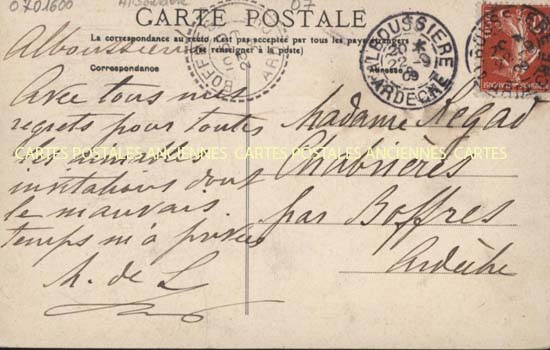 0701600
Alboussière
07
CARTE POSTALE
La correspondance au recto n'est pas acceptée par tous les pays étrangers
(se renseigner à la poste)
Correspondance
Adresse
Alboussière
Avec tous mes
regrets pour toutes
vos aimables
invitations dont
le mauvais
temps m'a privée
M. de L
Madame Regad
Chabrières
par Boffres
Ardèche
ALBOUSSIÈRE
22 -9
09
ARDÈCHE
BOFF
CARTES POSTALES ANCIENNES CARTES POSTALES ANCIENNES CARTES